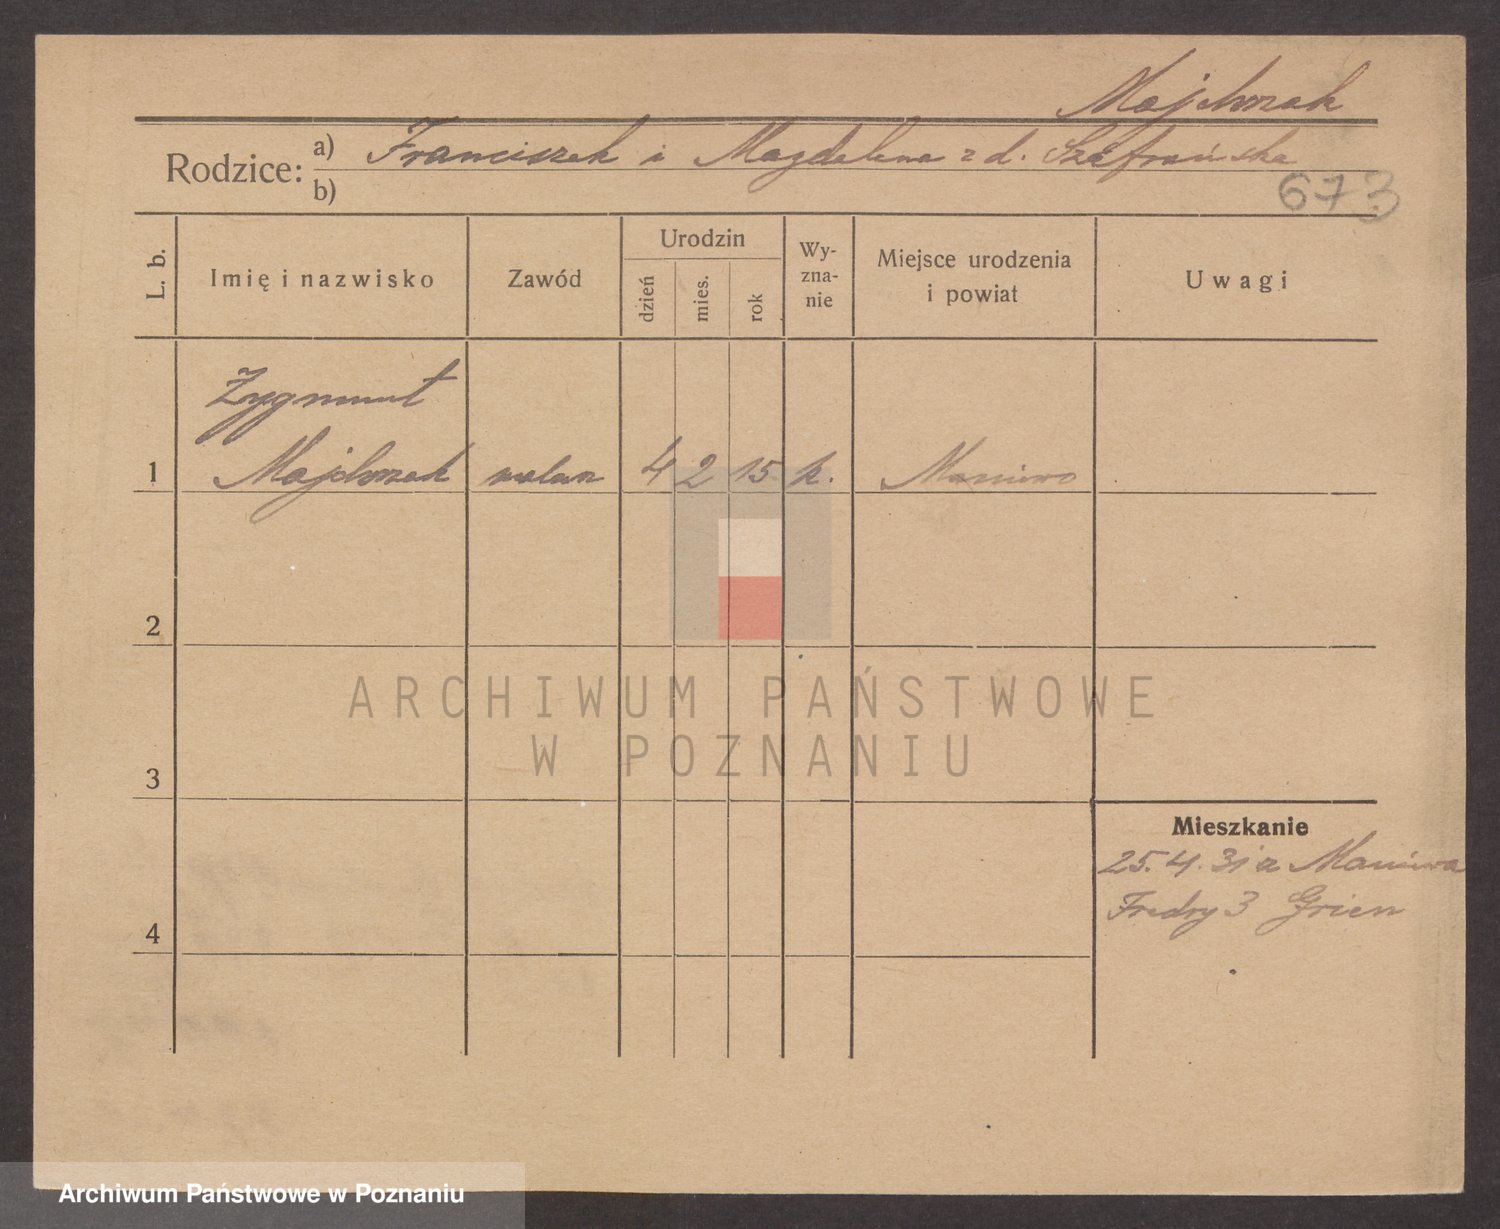 Majchrzak
Rodzice: a) Franciszek i Magdalena z d. Szafrańska
b)
673
L. b.
Imię i nazwisko
Zawód
Urodzin
dzień
mies.
rok
Wy-
zna-
nie
Miejsce urodzenia
i powiat
Uwagi
Zygmunt
1 Majchrzak 4 2 15 k. Maniewo
2
ARCHIWUM PAŃSTWOWE
W POZNANIU
3
Mieszkanie
25. 4. 31 z Maniewa
Fredry 3 Grien
4
Archiwum Państwowe w Poznaniu